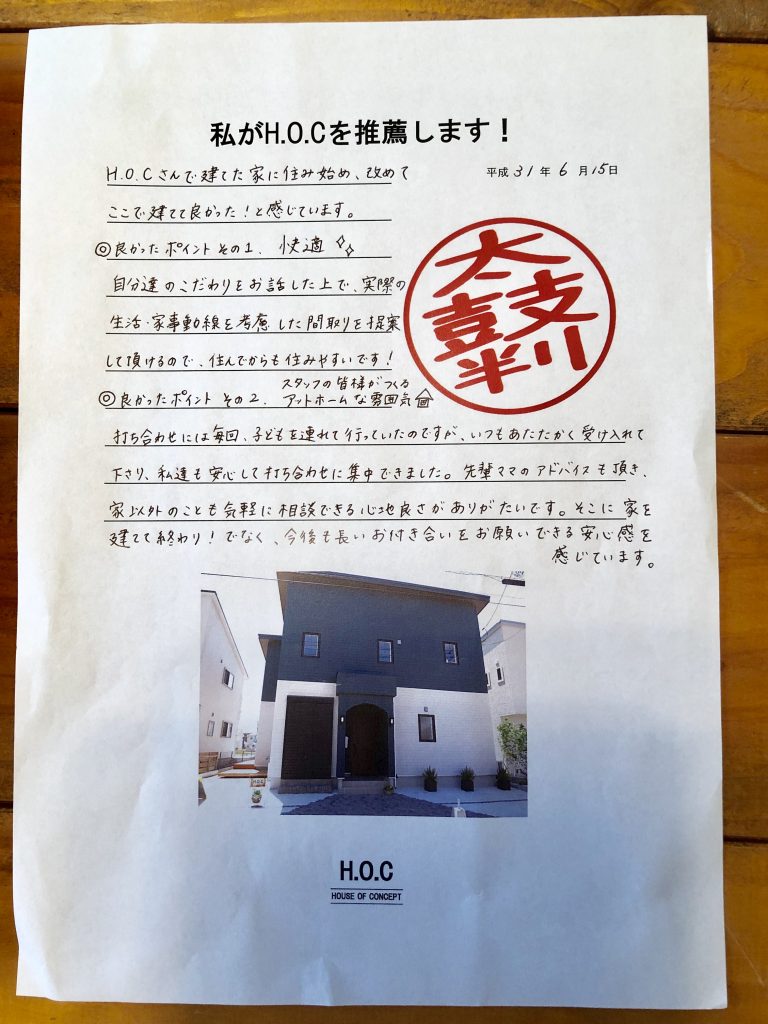 私がH.O.Cを推薦します！
平成 31 年 6 月 15日
H.O.Cさんで建てた家に住み始め、改めて
ここで建てて良かった！と感じています。
◎良かったポイント その1. 快適
自分達のこだわりをお話した上で、実際の
生活・家事動線を考慮した間取りを提案
して頂けるので、住んでからも住みやすいです！
◎良かったポイント その2. スタッフの皆様がつくる
アットホームな雰囲気
打ち合わせには毎回、子どもを連れて行っていたのですが、いつもあたたかく受け入れて
下さり、私達も安心して打ち合わせに集中できました。先輩ママのアドバイスも頂き、
家以外のことも気軽に相談できる心地良さがありがたいです。そこに家を
建てて終わり！でなく、今後も長いお付き合いをお願いできる安心感を
感じています。
太
鼓
判
H.O.C
H.O.C
HOUSE OF CONCEPT